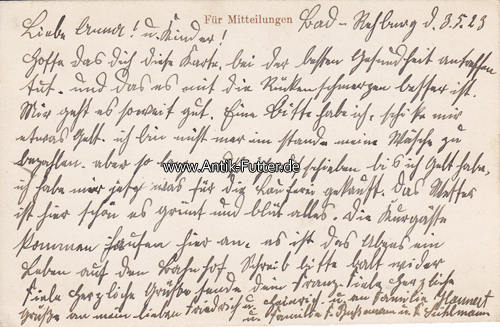 Für Mitteilungen Bad-Rehburg d. 3.5.23
Liebe Anna! u. Kinder!
Hoffe das dich diese Karte, bei der besten Gesundheit antreffen
tut. und das es mit die Rükenschmerzen besser ist.
Mir geht es soweit gut. Eine Bitte habe ich, schike mir
etwas Gelt. ich bin nicht mer im stande meine Wäsche zu
bezahlen. aber so
www.Antik-Futter.de
schieben bis ich Gelt habe,
ich habe mir jetzt was für die Lauferei gekauft. Das Wetter
ist hier schön es grünt und blüt alles. Die Kurgäste
kommen haufen hier an, es ist das Abens ein
Leben auf den Bahnhof. Schreib bitte balt wider
Viele herzliche Grüße sendet dein Franz. Viele herzliche
Grüße an mein lieben Friedrich u. Heinrich u. an Familie
u. Familie u.